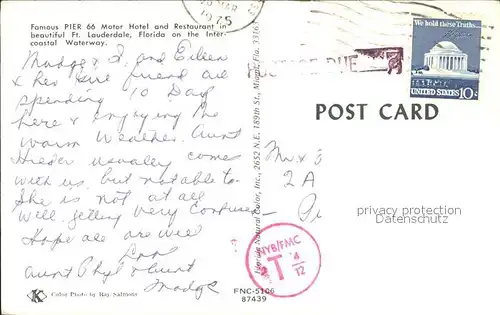 Famous PIER 66 Motor Hotel and Restaurant in
beautiful Ft. Lauderdale, Florida on the Inter-
coastal Waterway.
Madge & I and Eileen
& her girl friend are
spending 10 Day
here & enjoying the
warm Weather. Aunt
usualey comes
with us, but not able to
She is not at all
Will, getting very confused
Hope all are well
Love
Aunt Phyl & Aunt
Madge
K
Color Photo by Ray Salmons
FNC-5106
87439
Florida Natural Color, Inc., 2652 N.E. 189th St., Miami, Fla. 3316
1975
DUE
We hold these Truths...
UNITED STATES 10c
POST CARD
Mr &
2 A
privacy protection
Datenschutz
NYB/FMC
T 4/12